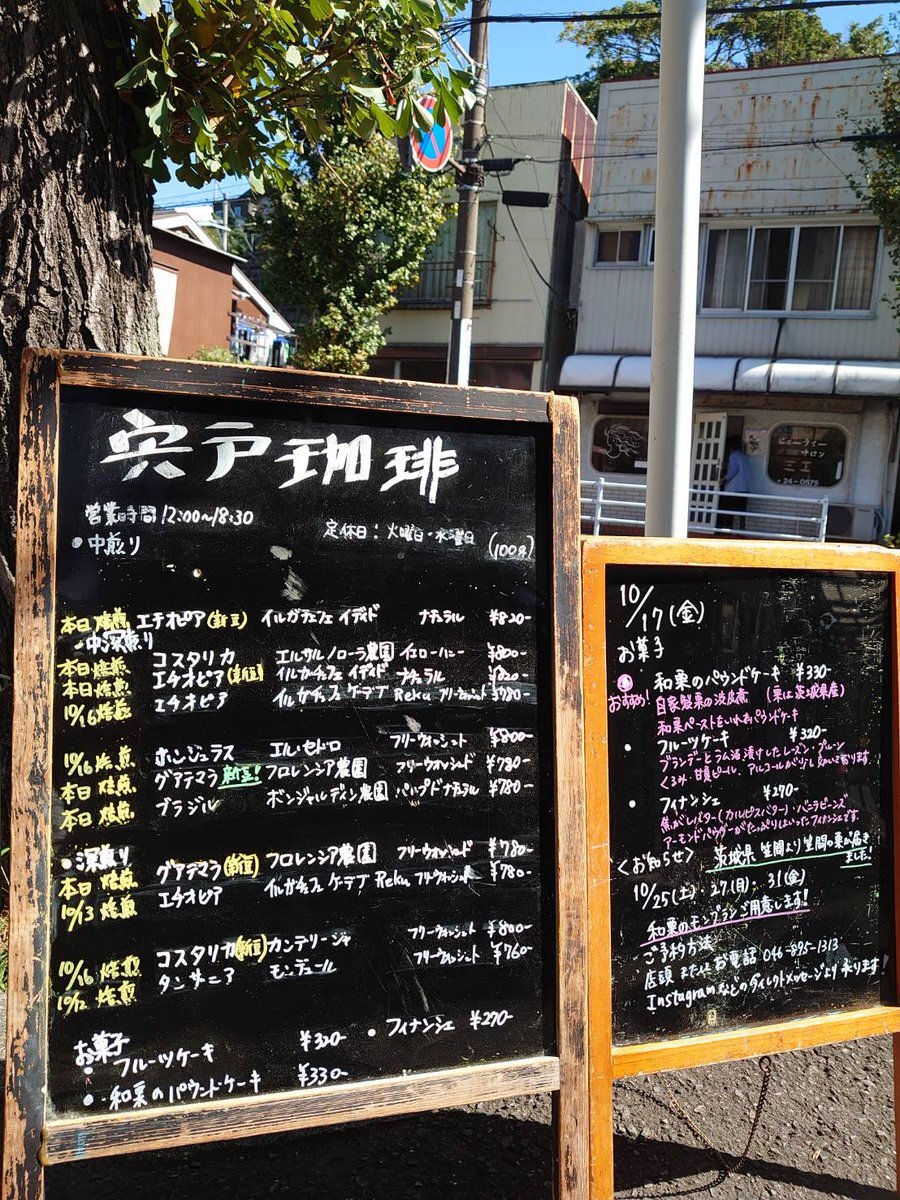 宍戸珈琲
営業時間 12:00〜18:30
定休日：火曜日・水曜日
・中煎り (100g)
本日焙煎 エチオピア(新豆) イルガチェフェ イディド ナチュラル ¥820-
・中深煎り
本日焙煎 コスタリカ エルサルノローラ農園 イエローハニー ¥800-
本日焙煎 エチオピア(新豆) イルガチェフェ イディド ナチュラル ¥820-
10/16焙煎 エチオピア イルガチェフェ ケーテブ Reku フリーウォッシュト ¥780-
10/16焙煎 ホンジュラス エル・セドロ フリーウォッシュト ¥800-
本日焙煎 グアテマラ 新豆! フロレンシア農園 フリーウォッシュド ¥780-
本日焙煎 ブラジル ボンジャルディン農園 パルプドナチュラル ¥780-
・深煎り
本日焙煎 グアテマラ(新豆) フロレンシア農園 フリーウォッシュド ¥780-
10/13焙煎 エチオピア イルガチェフェ ケーテブ Reku フリーウォッシュト ¥780-
10/16焙煎 コスタリカ(新豆) カンデリージャ フリーウォッシュト ¥800-
10/12焙煎 タンザニア モンデュール フリーウォッシュト ¥760-
お菓子
・フルーツケーキ ¥320-
・フィナンシェ ¥270-
・和栗のパウンドケーキ ¥330-
10/17(金)
お菓子
おすすめ!
和栗のパウンドケーキ ¥330-
自家製栗の渋皮煮 (栗は茨城県産)
和栗ペーストをいれたパウンドケーキ
・フルーツケーキ ¥320-
ブランデーとラム酒漬けしたレーズン・プルーン
くるみ・甘夏ピール。アルコールが少し
・フィナンシェ ¥270-
焦がしバター(カルピスバター)・バニラビーンズ
アーモンドパウダーがたっぷりはいったフィナンシェです
<お知らせ> 茨城県 笠間より笠間の栗が届きました!
10/25(土)・27(月)・31(金)
和栗のモンブランご用意します!
ご予約方法
店頭 または お電話 046-895-1313
Instagramなどのダイレクトメッセージより承ります!
ビューティー
サロン
ミエ
24-0575